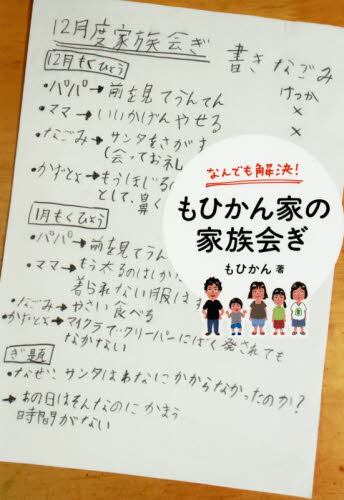 12月度家族会ぎ
書き なごみ
12月もくひょう
けっか
・パパ→前を見てうんてん
×
・ママ→いいかげんやせる
×
・なごみ→サンタをさがす
(会ってお礼
・かずとよ→もうほじるの
として、鼻く
なんでも解決!
もひかん家の
家族会ぎ
もひかん 著
1月もくひょう
・パパ→前を見てうん
・ママ→もう太るのはしかた
着られない服はす
・なごみ→やさい食べる
・かずとよ→マイクラでクリーパーにばく発されても
なかない
ぎ題
・なぜ?サンタはあなにかからなかったのか?
→あの日はそんなのにかまう
時間がない